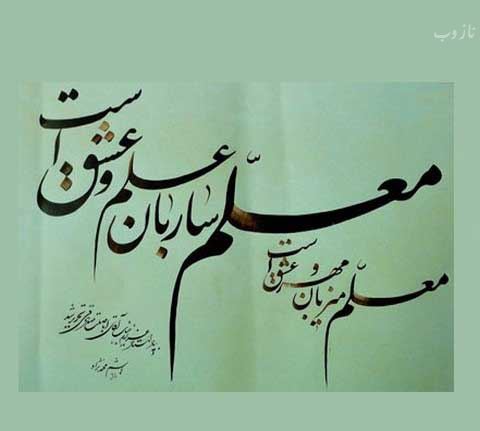 ناز وب
معلّم ساربان علم و عشق است
معلّم میزبان مهر و عشق است